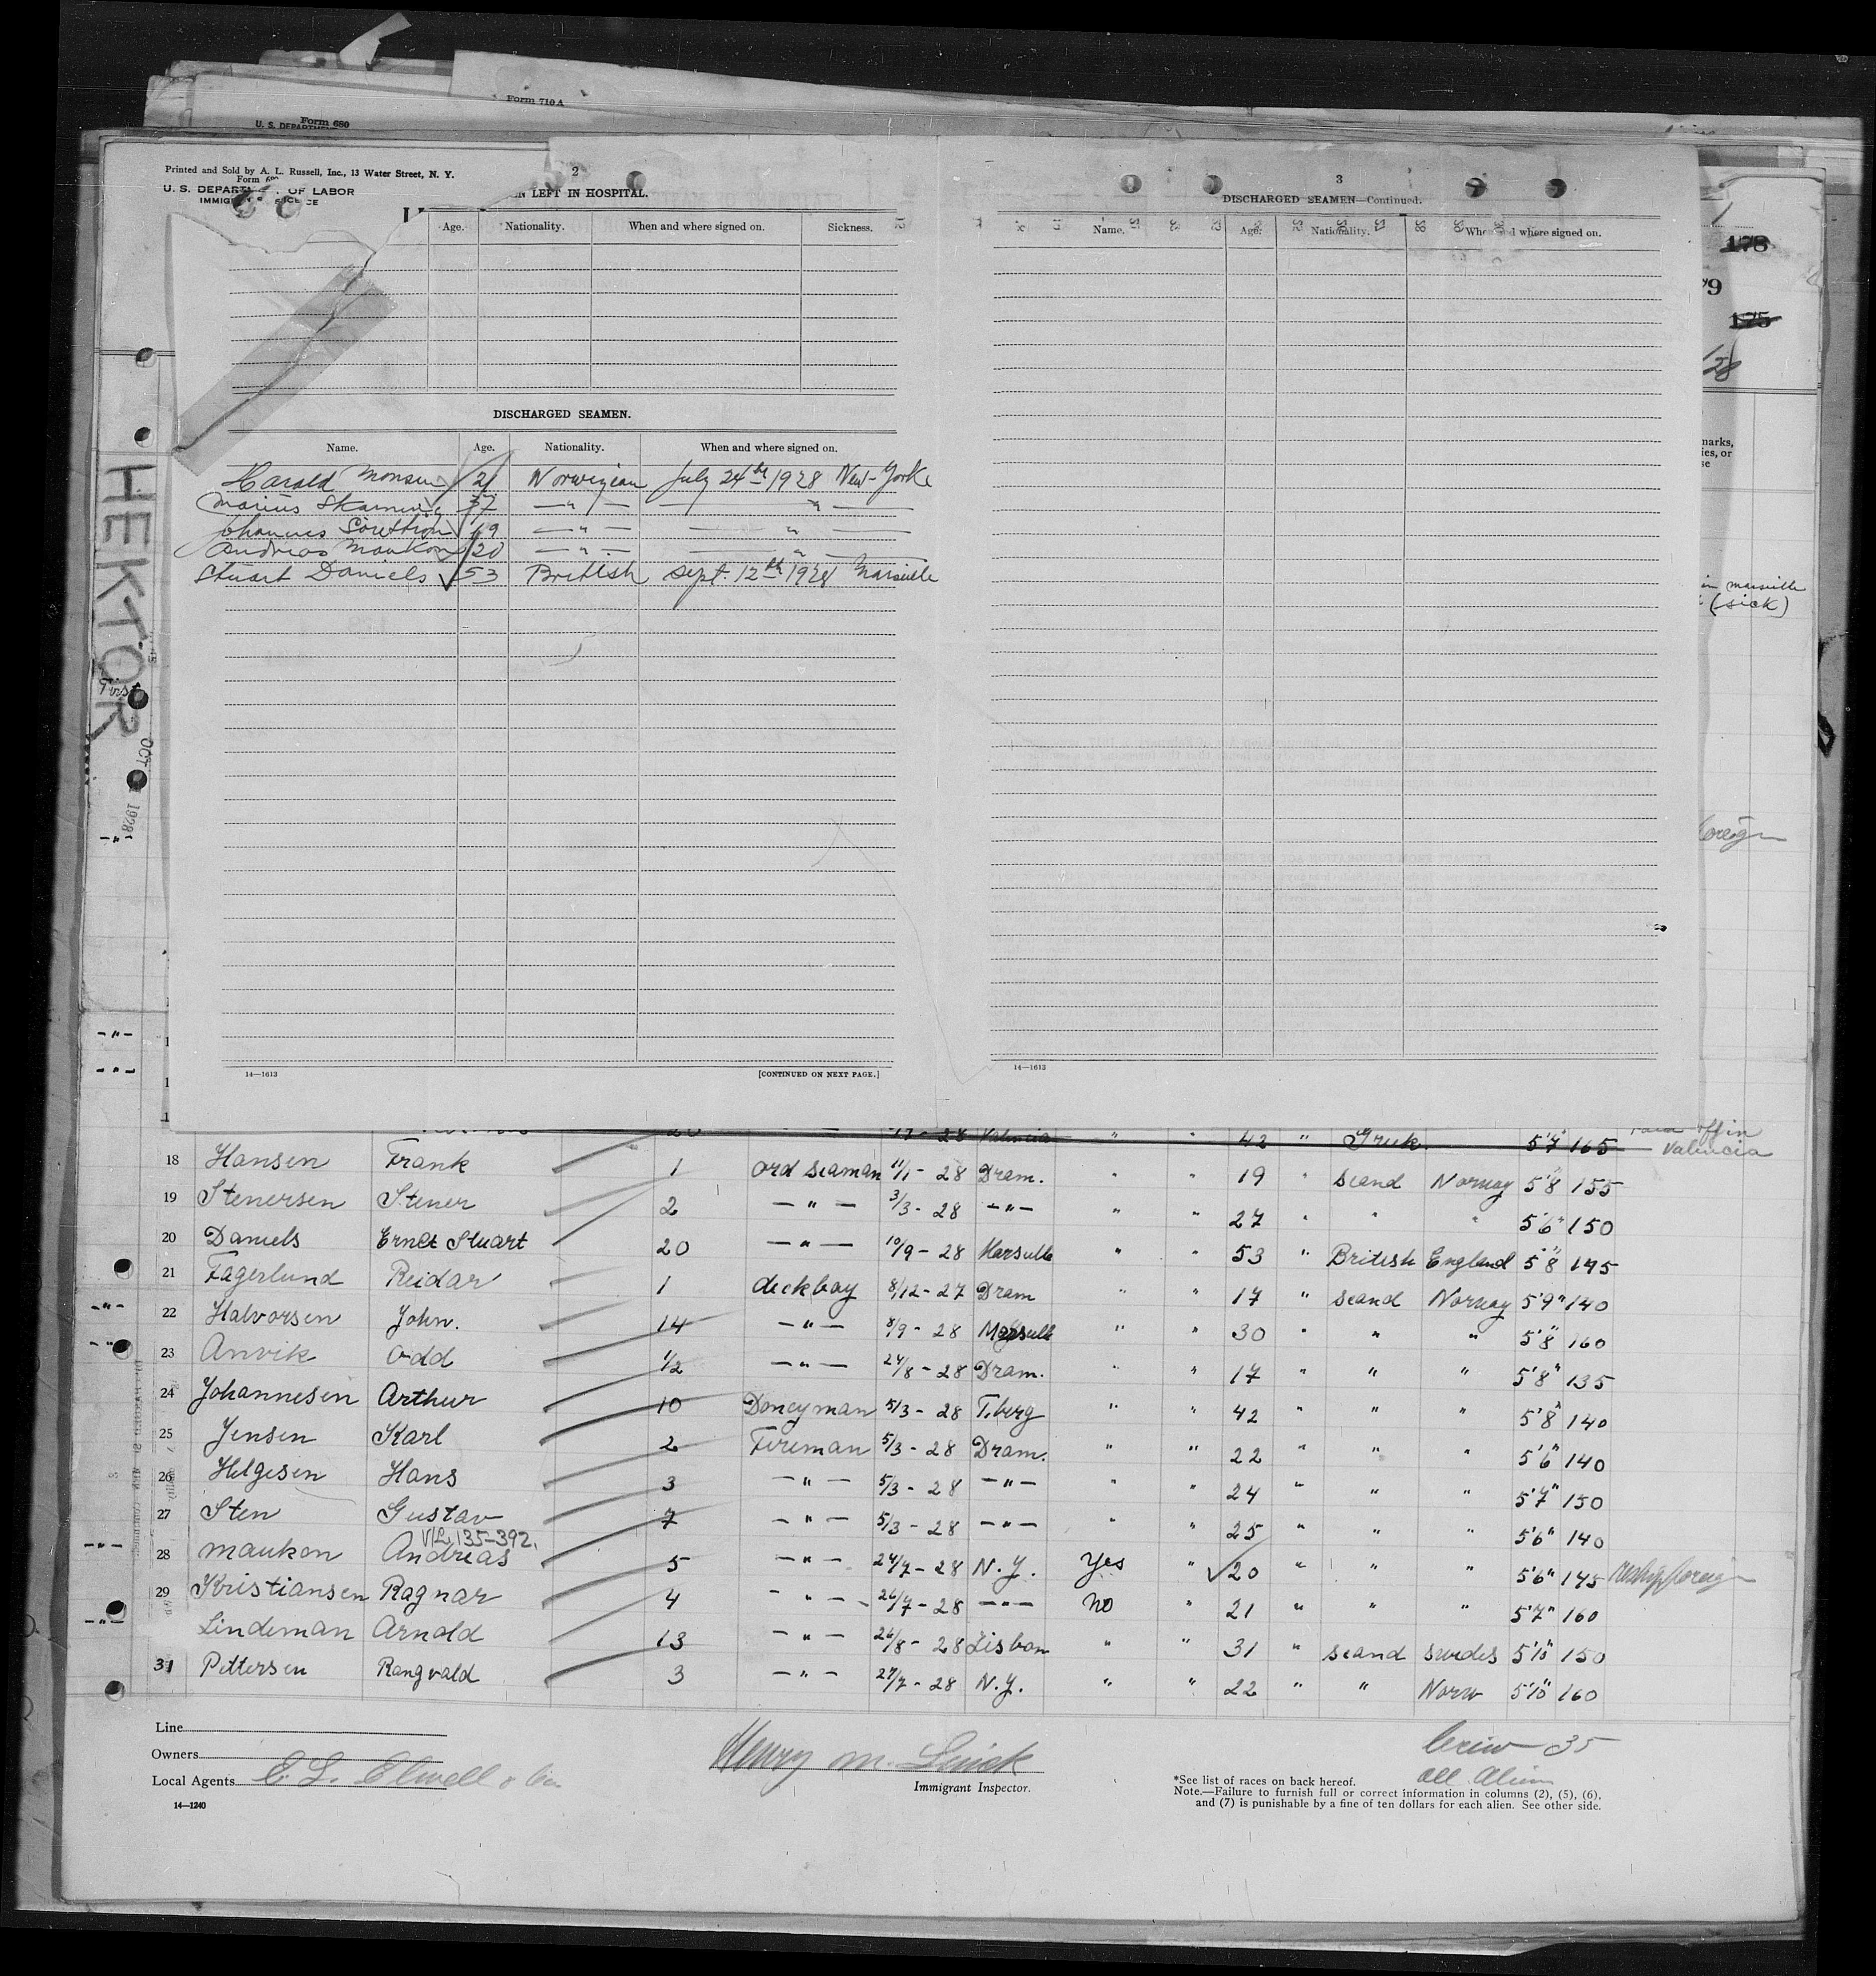 Form 710A
Form 680
U. S. DEPARTMENT
Printed and Sold by A. L. Russell, Inc., 13 Water Street, N. Y.
U. S. DEPART OF LABOR
2
LEFT IN HOSPITAL.
Age. Nationality. When and where signed on. Sickness.
DISCHARGED SEAMEN.
Name. Age. Nationality. When and where signed on.
Harald Monsen 21 Norwigean July 24th 1928 New-York
Marius 37 — " — — " —
Johannes 19 — " — — " —
Andreas Maukon 20 — " — — " —
Stuart Daniels 53 Brittish Sept. 12th 1928 Marseille
14—1613 [CONTINUED ON NEXT PAGE.]
3
DISCHARGED SEAMEN—Continued.
Name. Age. Nationality. When and where signed on.
14—1613
178
9
175
/28
marseille
(sick)
foreign
HEKTOR
First
OCT 1928
17 - 28 Valencia " " 42 " Greek 5'7" 165 off in
Valencia
18 Hansen Frank 1 ord seaman 11/1 - 28 Dram. " " 19 " Scand Norway 5'8" 155
19 Stenersen Stener 2 — " — 3/3 - 28 — " — " " 27 " " " 5'6" 150
20 Daniels Ernest Stuart 20 — " — 10/9 - 28 Marseille " " 53 " British England 5'8" 195
21 Fagerlund Reidar 1 deckboy 8/12 - 27 Dram " " 17 " Scand Norway 5'9" 140
22 Halvorsen John. 14 — " — 8/9 - 28 Marseille " " 30 " " " 5'8" 160
23 Anvik Odd 1/2 — " — 24/8 - 28 Dram. " " 17 " " " 5'8" 135
24 Johannesen Arthur 10 Doneyman 5/3 - 28 T.berg " " 42 " " " 5'8" 140
25 Jensen Karl 2 Fireman 5/3 - 28 Dram. " " 22 " " " 5'6" 140
26 Helgesen Hans 3 — " — 5/3 - 28 — " — " " 24 " " " 5'7" 150
27 Sten Gustav 7 — " — 5/3 - 28 — " — " " 25 " " " 5'6" 140
V/L 135-392.
28 Maukon Andreas 5 — " — 24/7 - 28 N.Y. Yes " 20 " " " 5'6" 145 foreign
29 Kristiansen Ragnar 4 — " — 26/7 - 28 — " — No " 21 " " " 5'7" 160
Lindeman Arnold 13 — " — 26/8 - 28 Lisbon " " 31 " Scand Swedes 5'10" 150
31 Pettersen Rangvald 3 — " — 27/7 - 28 N.Y. " " 22 " " Norw 5'10" 160
Line
Owners
Local Agents E. L. Elwell & Co.
14—1240
Immigrant Inspector.
Crew 35
all Alien
*See list of races on back hereof.
Note.—Failure to furnish full or correct information in columns (2), (5), (6),
and (7) is punishable by a fine of ten dollars for each alien. See other side.